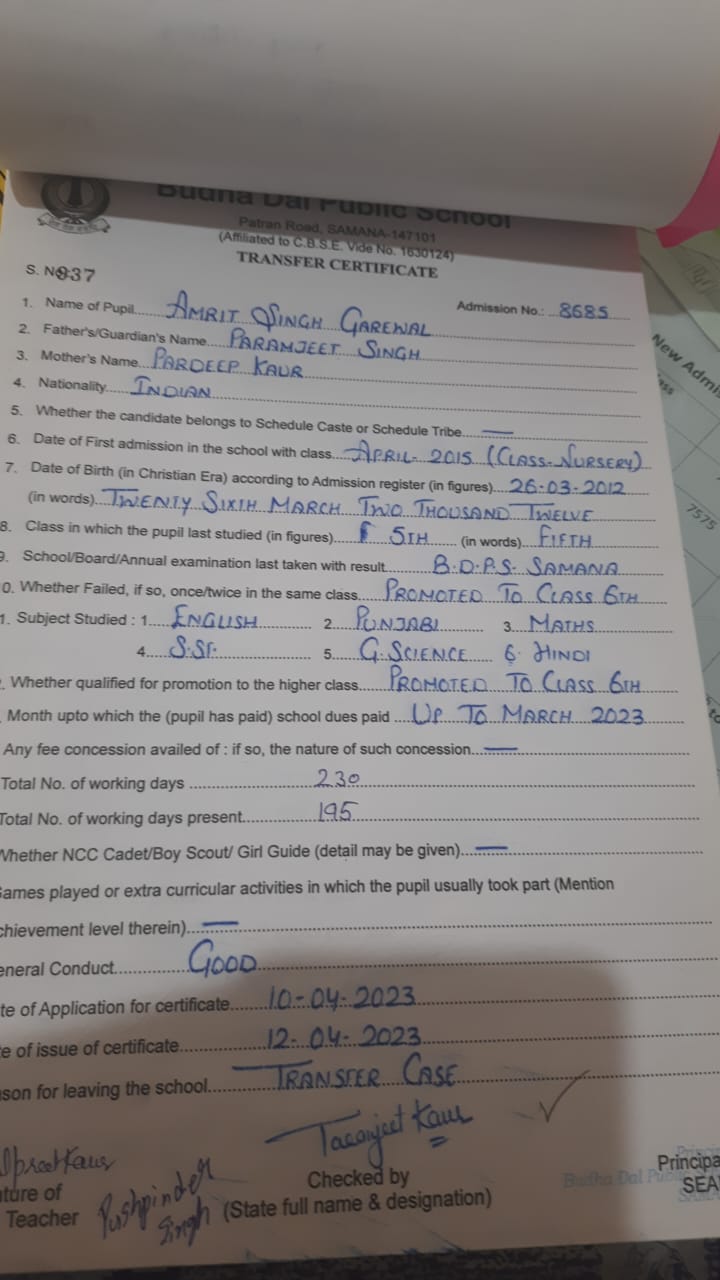 Budha Dal Public School
Patran Road, SAMANA-147101
(Affiliated to C.B.S.E. Vide No. 1630124)
TRANSFER CERTIFICATE
S. No 937
Admission No.: 8685
1. Name of Pupil AMRIT SINGH GAREWAL
2. Father's/Guardian's Name PARAMJEET SINGH
3. Mother's Name PARDEEP KAUR
4. Nationality INDIAN
5. Whether the candidate belongs to Schedule Caste or Schedule Tribe —
6. Date of First admission in the school with class APRIL- 2015 (CLASS-NURSERY)
7. Date of Birth (in Christian Era) according to Admission register (in figures) 26-03-2012
(in words) TWENTY SIXTH MARCH TWO THOUSAND TWELVE
8. Class in which the pupil last studied (in figures) 5TH (in words) FIFTH
9. School/Board/Annual examination last taken with result B.D.P.S. SAMANA
0. Whether Failed, if so, once/twice in the same class PROMOTED TO CLASS 6TH
1. Subject Studied : 1 ENGLISH 2 PUNJABI 3 MATHS
4 S.ST. 5 G.SCIENCE 6. HINDI
. Whether qualified for promotion to the higher class PROMOTED TO CLASS 6TH
Month upto which the (pupil has paid) school dues paid UP TO MARCH 2023
Any fee concession availed of : if so, the nature of such concession —
Total No. of working days 230
Total No. of working days present 195
Whether NCC Cadet/Boy Scout/ Girl Guide (detail may be given) —
Games played or extra curricular activities in which the pupil usually took part (Mention
chievement level therein) —
eneral Conduct GOOD
te of Application for certificate 10-04-2023
e of issue of certificate 12-04-2023
son for leaving the school TRANSFER CASE
Checked by
(State full name & designation)
ture of
Teacher
Pushpinder
Singh
Principa
SEA
Budha Dal Pub
New Admis
ass
7575